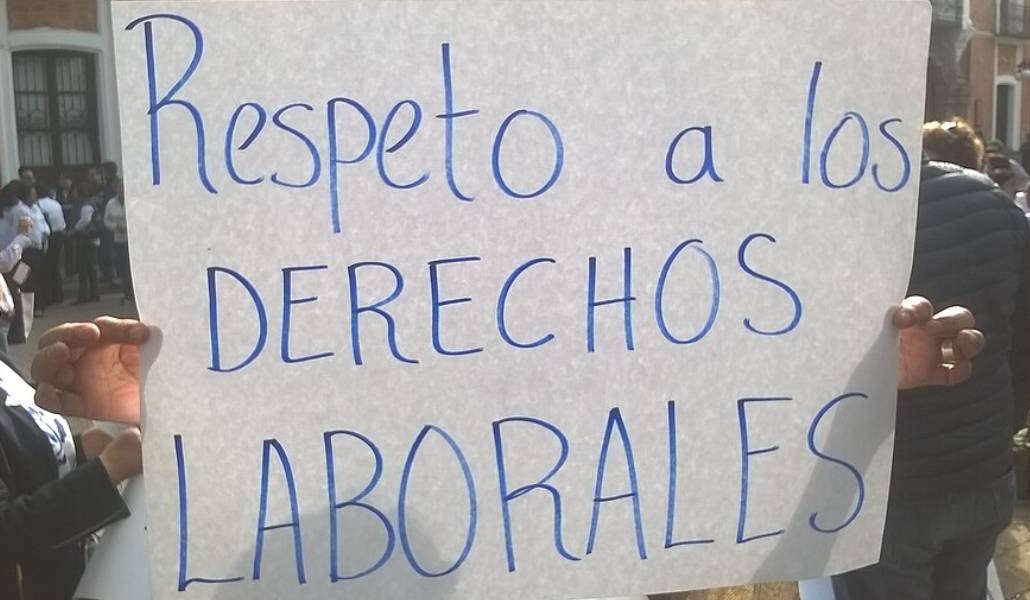 Respeto a los
DERECHOS
LABORALES